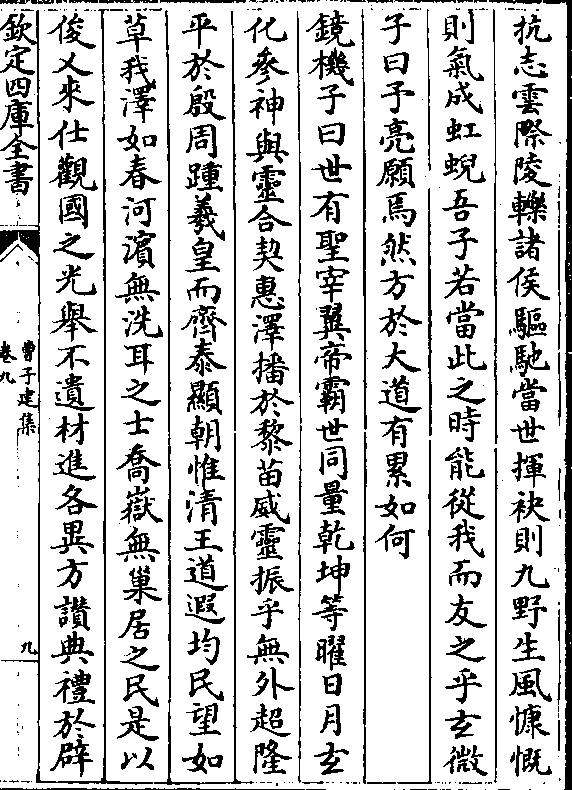 抗志雲際陵轢諸侯驅馳當世揮袂則九野生風慷慨
則氣成虹蜺吾子若當此之時能從我而友之乎玄微
子曰予亮願焉然方於大道有累如何
鏡機子曰世有聖宰翼帝霸世同量乾坤等曜日月玄
化參神與靈合契惠澤播於黎苗威靈振乎無外超隆
平於殷周踵羲皇而齊泰顯朝惟清王道遐均民望如
草我澤如春河濱無洗耳之士喬嶽無巢居之民是以
俊乂來仕觀國之光舉不遺材進各異方讃典禮於辟
欽定四庫全書
曹子建集
卷九
九